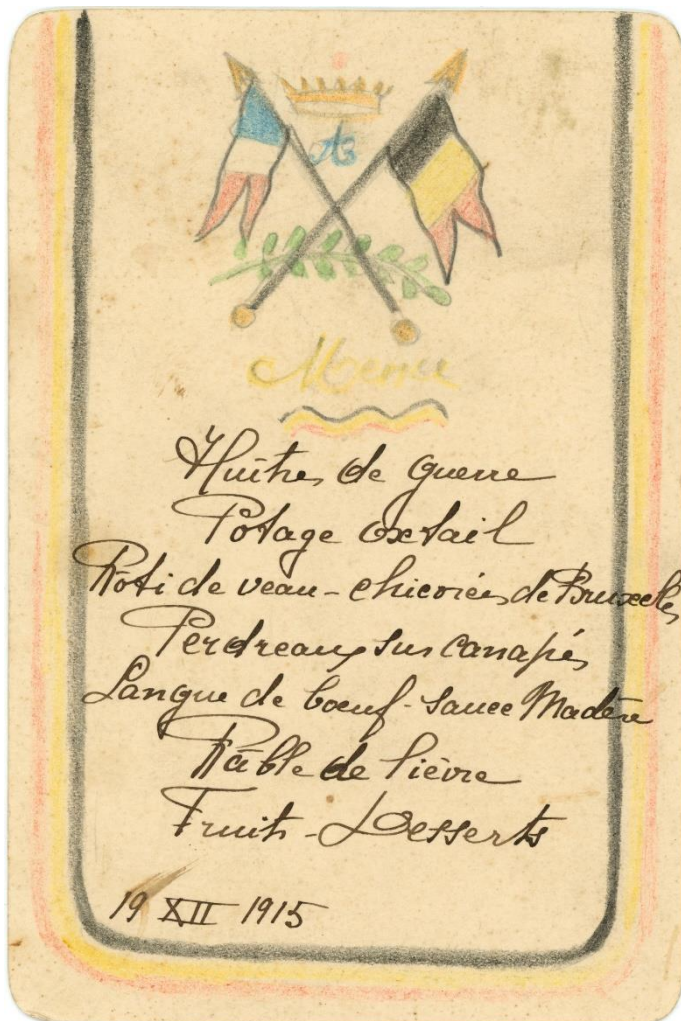 Menu
Huîtres de guerre
Potage oxtail
Rôti de veau - chicorées de Bruxelles
Perdreaux sur canapés
Langue de boeuf - sauce Madère
Râble de lièvre
Fruits - Desserts
19 XII 1915